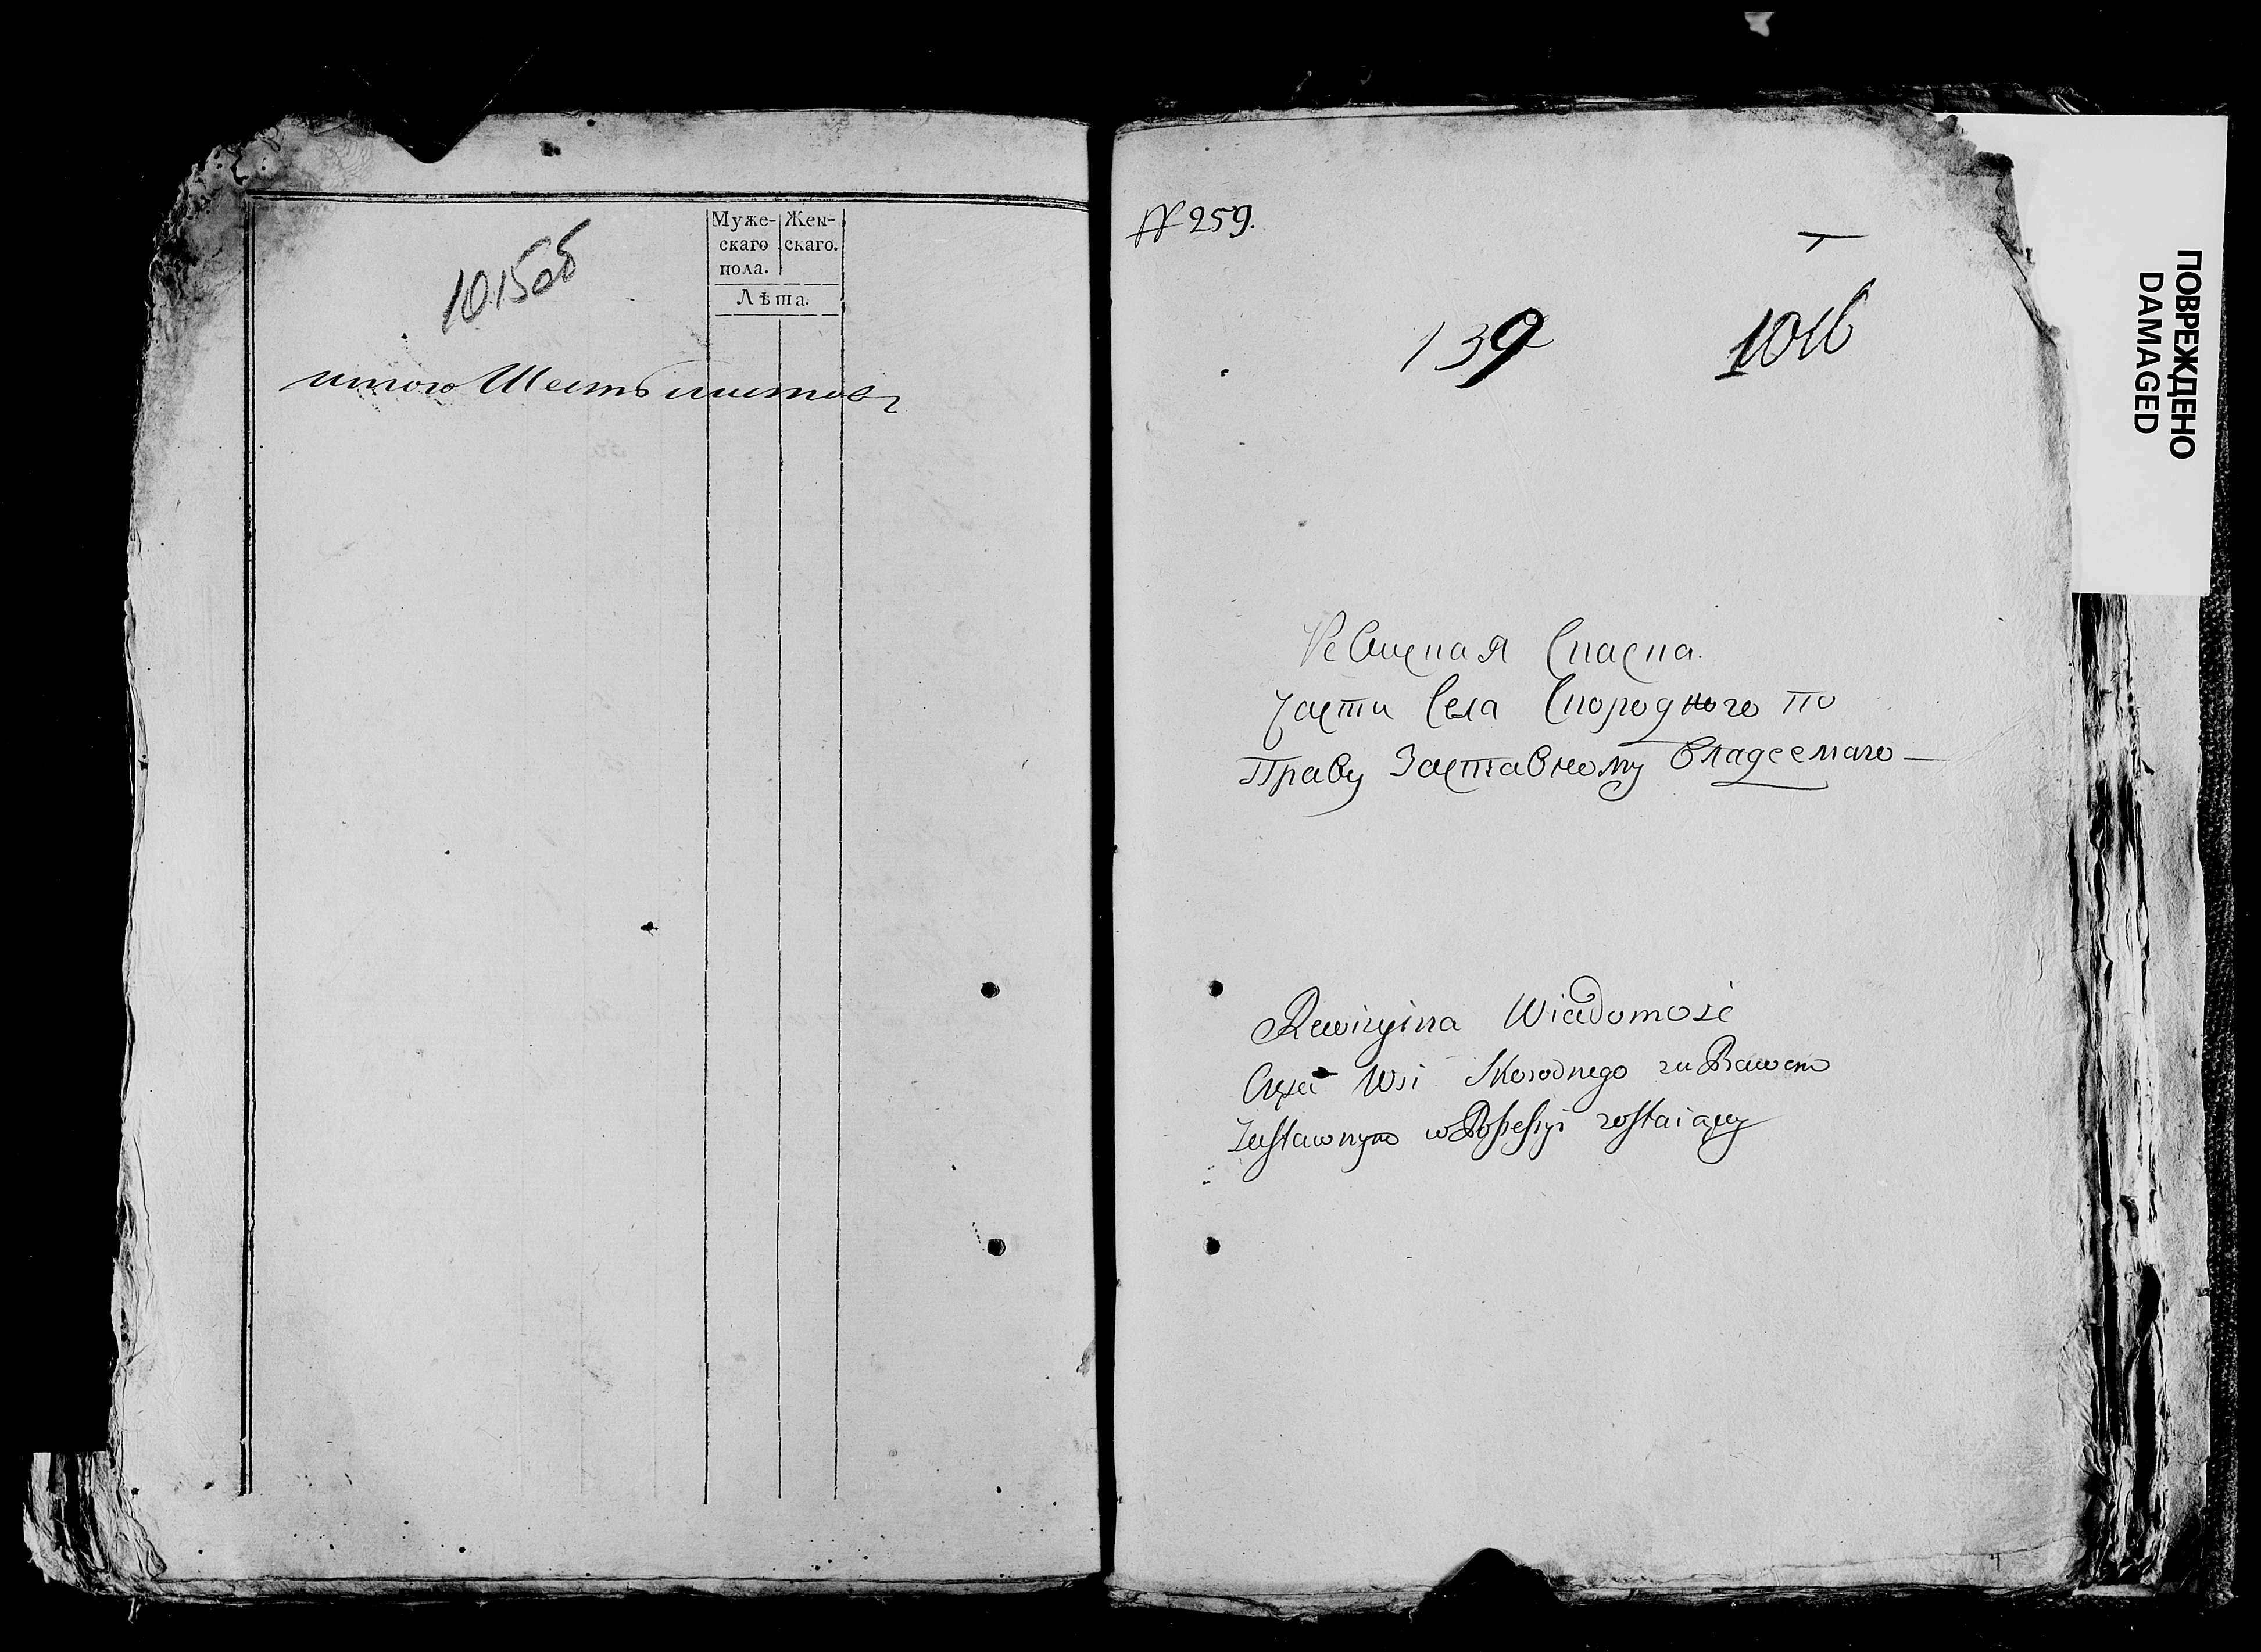 1015об
Муже-
скаго
пола.
Жен-
скаго.
Лѣта.
итого Шесть листовъ
№ 259.
139
1016
Ревизская Сказка.
Части Села Скородного по
Праву Заставному владеемаго —
Rewizyina Wiadomość
Części Wsi Skorodnego za Prawem
Zastawnym w Possessyi zostaiący
ПОВРЕЖДЕНО
DAMAGED